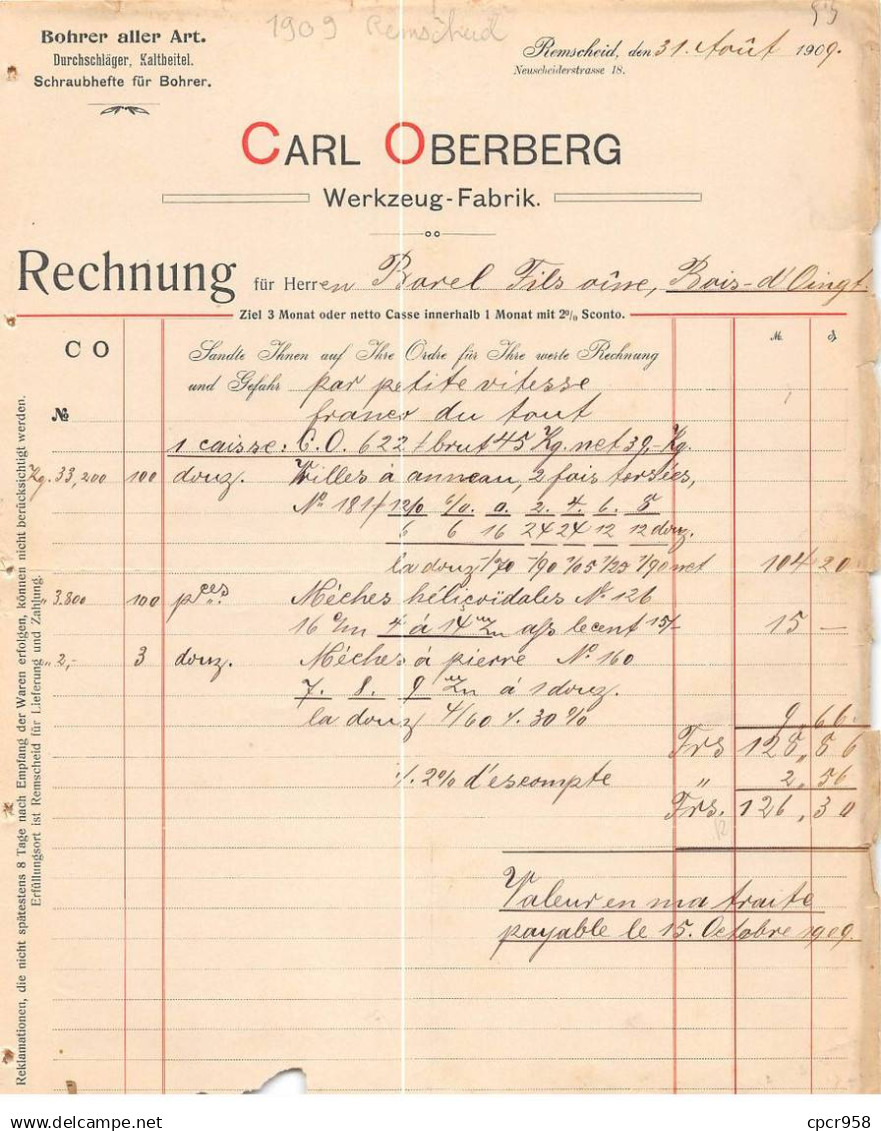 1909 Remscheid
Bohrer aller Art.
Durchschläger, Kaltbeitel.
Schraubhefte für Bohrer.
Remscheid, den 31. Août 1909.
Neuscheiderstrasse 18.
CARL OBERBERG
Werkzeug-Fabrik.
Rechnung für Herren Borel Fils aîné, Bois-d'Oingt.
Ziel 3 Monat oder netto Casse innerhalb 1 Monat mit 2% Sconto.
M. ₰
C O Sandte Ihnen auf Ihre Ordre für Ihre werte Rechnung
und Gefahr par petite vitesse
№ franco du tout
1 caisse: C.O. 622 / brut 45 Kg. net 39,- Kg.
Kg. 33,200 100 douz. Vrilles à anneau, 2 fois torsées,
N° 181/ 12/0 6/0. 0. 2. 4. 6. 8
6 6 16 24 24 12 12 douz.
la douz -/70 -/90 1/05 1/25 1/90 net 104 20
" 3.800 100 pces Mèches héliçoïdales N° 126
16 c/m 4 à 14 m/m ass le cent 15/- 15 —
" 2,- 3 douz. Mèches à pierre N° 160
7. 8. 9 m/m à 1 douz.
la douz 4/60 ./. 30% 9,66
Frs 128,86
./. 2% d'escompte " 2,56
Frs. 126,30
Valeur en ma traite
payable le 15. Octobre 1909.
Reklamationen, die nicht spätestens 8 Tage nach Empfang der Waren erfolgen, können nicht berücksichtigt werden.
Erfüllungsort ist Remscheid für Lieferung und Zahlung.
cpcr958